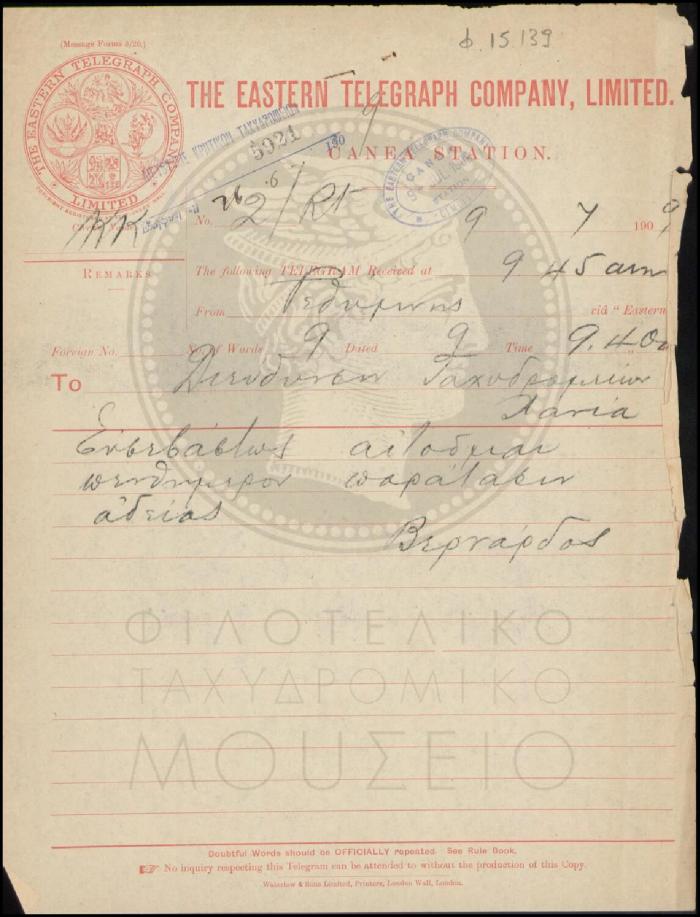 φ. 15.139
(Message Forms 3/20.)
THE EASTERN TELEGRAPH COMPANY LIMITED
THE EASTERN TELEGRAPH COMPANY, LIMITED.
5921
CANEA STATION.
No. 2/Rt 9 7 1909
REMARKS
The following TELEGRAM Received at 9 45 am
From Ρεθύμνης viâ "Eastern
Foreign No. No. of Words 9 Dated 9 Time 9.40
To Διεύθυνσιν Ταχυδρομείων
Χανία
Ευσεβάστως αιτούμαι
πενθήμερον παράτασιν
αδείας
Βερνάρδος
ΦΙΛΟΤΕΛΙΚΟ
ΤΑΧΥΔΡΟΜΙΚΟ
ΜΟΥΣΕΙΟ
Doubtful Words should be OFFICIALLY repeated. See Rule Book.
No inquiry respecting this Telegram can be attended to without the production of this Copy.
Waterlow & Sons Limited, Printers, London Wall, London.